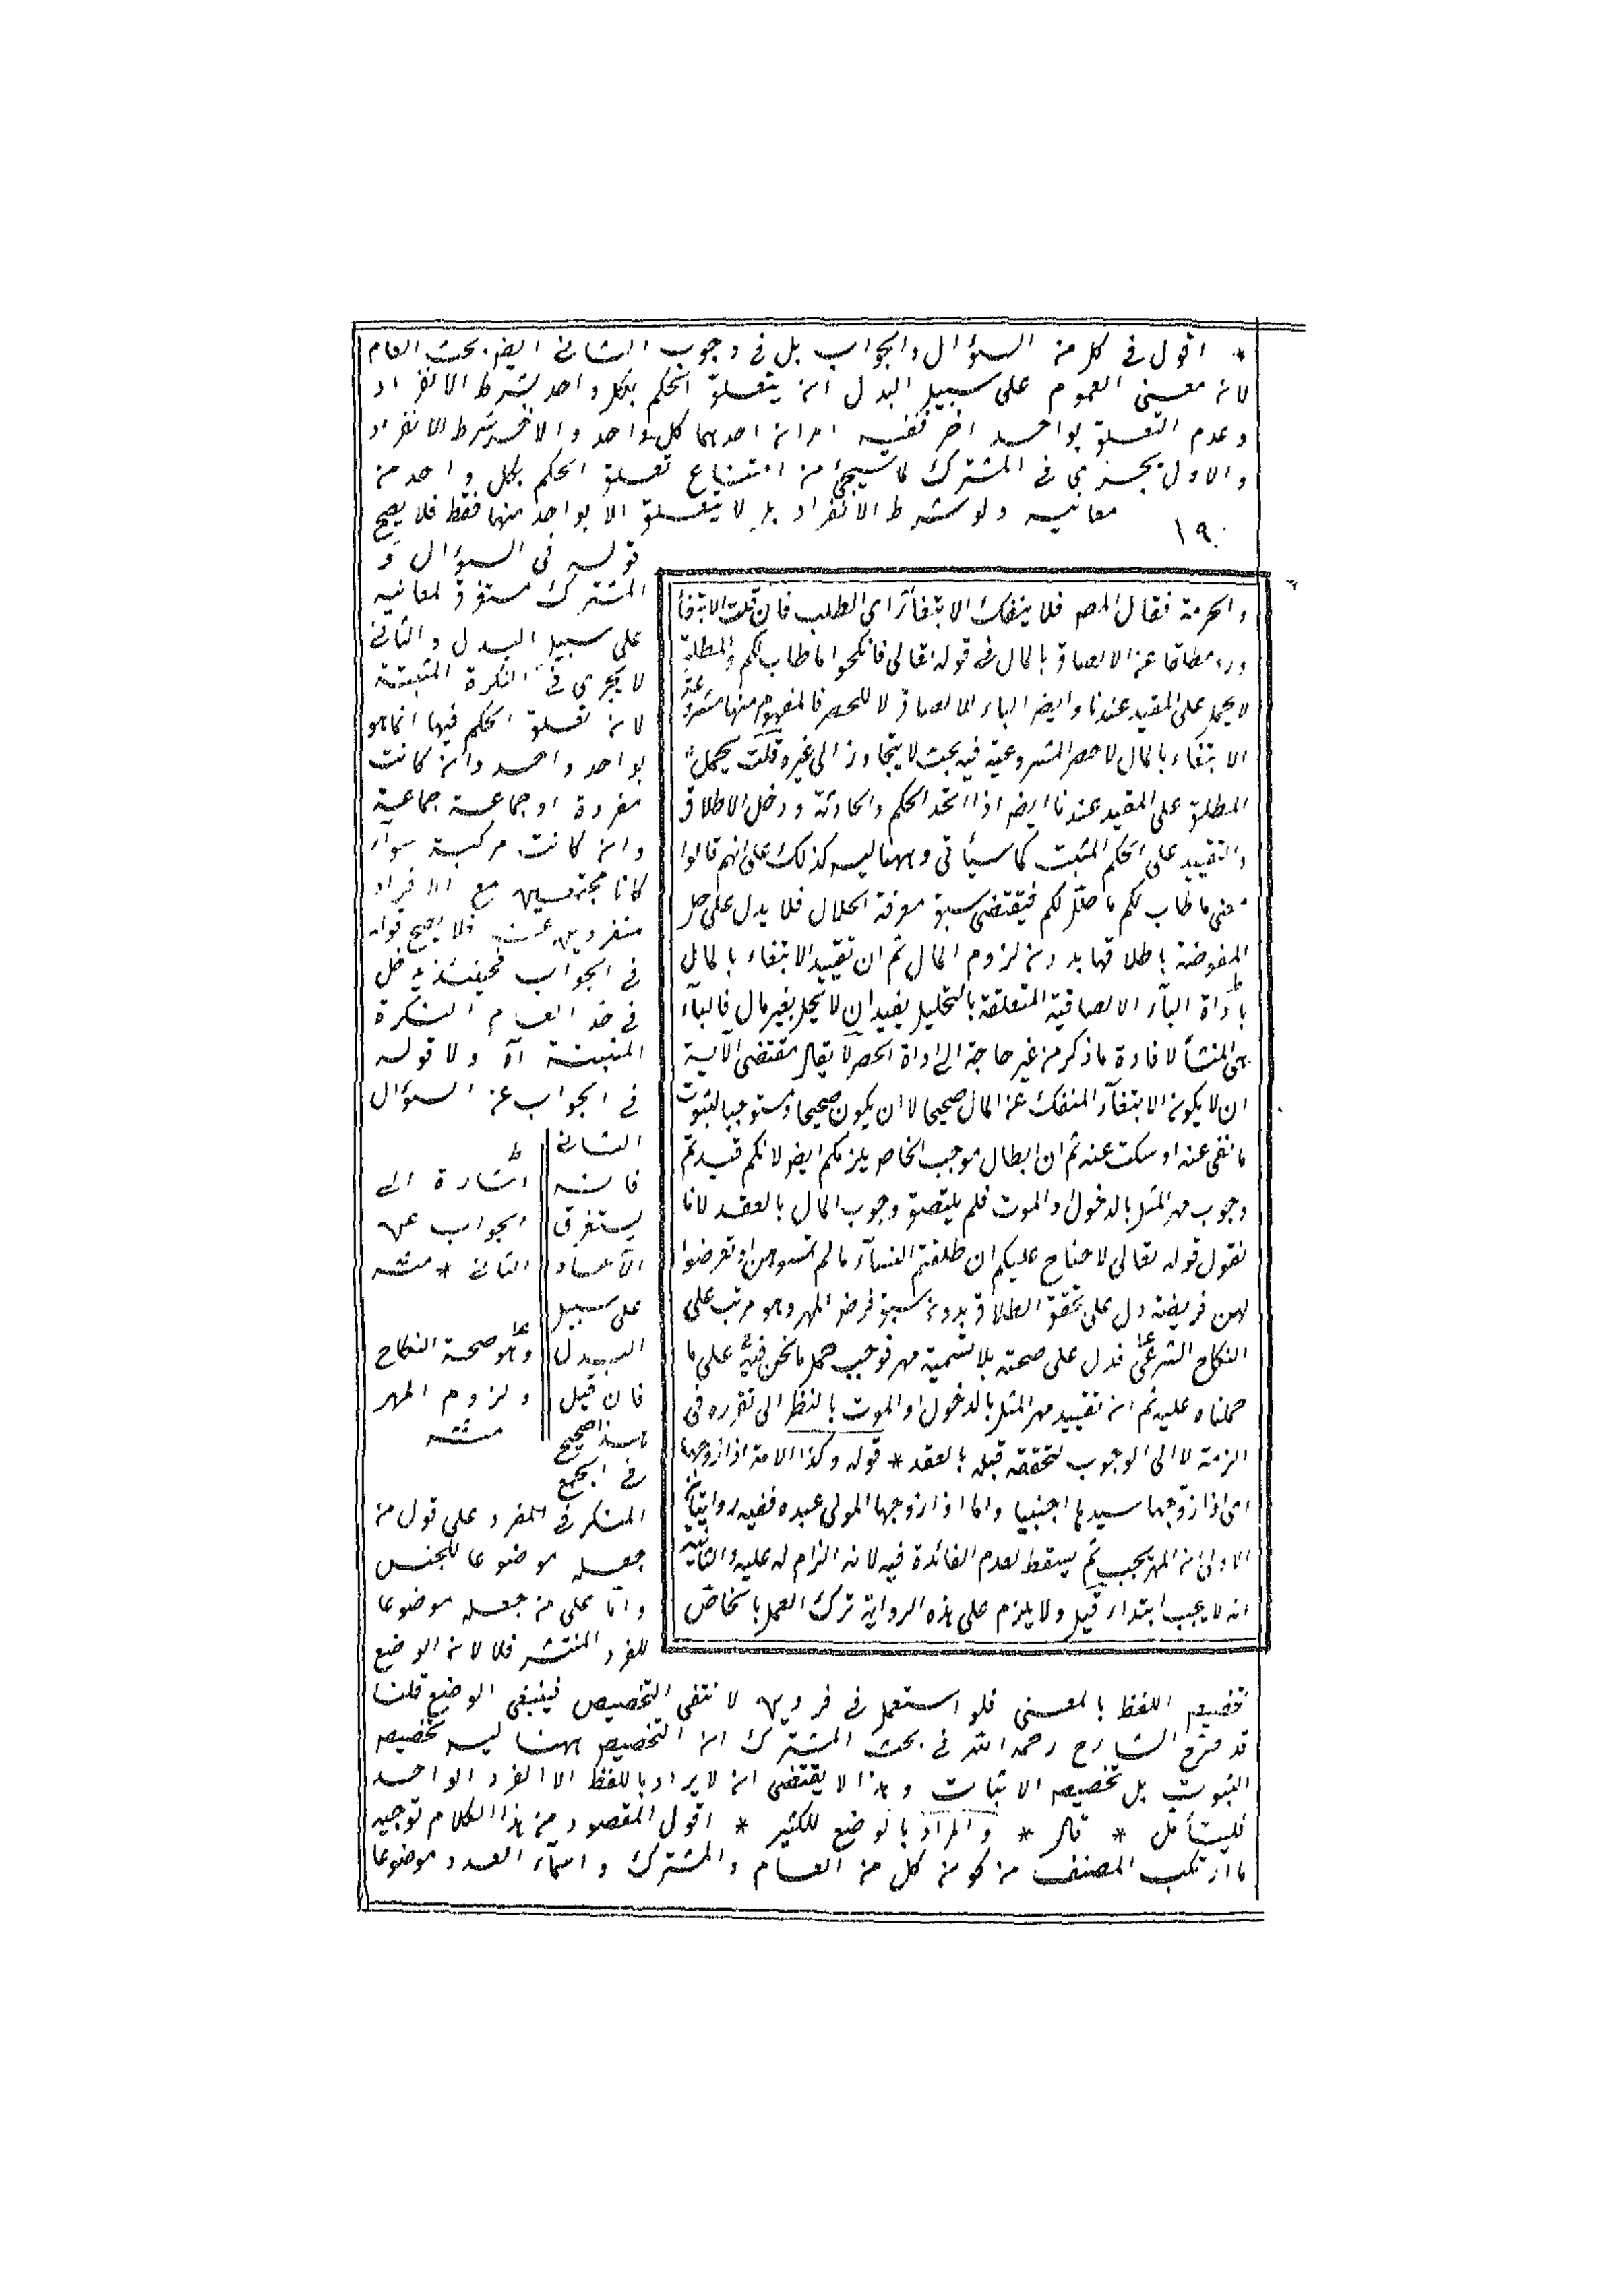 * اقول فى كل من السؤال والجواب بل فى وجوب الثانى ايضا بحث العام
لان معنى العموم على سبيل البدل ان يتعلق الحكم بكل واحد بشرط الانفراد
وعدم التعلق بواحد اخر ففيه امران احدهما كل واحد والاخر شرط الانفراد
والاول يجرى فى المشترك لما سيجئ من امتناع تعلق الحكم بكل واحد من
معانيه ولو بشرط الانفراد بل لا يتعلق الا بواحد منها فقط فلا يصح
١٩٠
قوله فى السؤال و
المشترك مستغرق لمعانيه
على سبيل البدل والثانى
لا يجرى فى النكرة المثبتة
لان تعلق الحكم فيها انما هو
بواحد واحد وان كانت
مفردة او جماعة جماعة
وان كانت مركبة سواء
كانا مجتمعين مع الافراد
منفردين عنه فلا يصح قوله
فى الجواب فحينئذ يدخل
فى حد العام النكرة
المثبتة آه ولا قوله
فى الجواب عن السؤال
الثانى
فانه
يستغرق
الآحاد
على سبيل
البدل
فان قيل
هذا صحيح
فى الجمع
المنكر فى المفرد على قول من
جعله موضوعا للجنس
واما على من جعله موضوعا
للفرد المنتشر فلا لان الوضع
تخصيص اللفظ بالمعنى فلو استعمل فى فردين لانتفى التخصيص فينتفى الوضع قلنا
قد صرح الشارح رحمه الله فى بحث المشترك ان التخصيص ههنا ليس تخصيص
الثبوت بل تخصيص الاثبات وهذا لا يقتضى ان لا يراد باللفظ الا الفرد الواحد
فليتأمل * قال * والمراد بالوضع للكثير * اقول المقصود من هذا الكلام توجيه
ما ارتكب المصنف من كون كل من العام والمشترك واسماء العدد موضوعا
اشارة الى
الجواب عن
الثانى * منه
وهو صحة النكاح
ولزوم المهر
منه
والحرمة فقال المص فلا ينفك الابتغاء اى الطلب فان قلت الابتغاء
ورد مطلقا عن الالصاق بالمال فى قوله تعالى فانكحوا ما طاب لكم والمطلق
لا يحمل على المقيد عندنا وايضا الباء للالصاق لا للحصر فالمفهوم منها مشروعية
الابتغاء بالمال لا حصر المشروعية فيه بحيث لا يتجاوز الى غيره قلت يحمل
المطلق على المقيد عندنا ايضا اذا اتحد الحكم والحادثة ودخل الاطلاق
والتقييد على الحكم المثبت كما سيأتى وههنا ليس كذلك على انهم قالوا
معنى ما طاب لكم ما حل لكم فيقتضى سبق معرفة الحلال فلا يدل على حل
المفوضة باطلاقها بدون لزوم المال ثم ان تقييد الابتغاء بالمال
باداة الباء الالصاقية المتعلقة بالتحليل يفيد ان لا يحل بغير مال فالباء
هى المنشأ لافادة ما ذكر من غير حاجة الى اداة الحصر لا يقال مقتضى الآية
ان لا يكون الابتغاء المنفك عن المال صحيحا لا ان يكون صحيحا ومستوجبا لثبوت
ما نفى عنه او سكت عنه ثم ان ابطال موجب الخاص يلزمكم ايضا لانكم قيدتم
وجوب مهر المثل بالدخول والموت فلم يلتصق وجوب المال بالعقد لانا
نقول قوله تعالى لا جناح عليكم ان طلقتم النساء ما لم تمسوهن او تفرضوا
لهن فريضة دل على تحقق الطلاق بدون سبق فرض المهر وهو مرتب على
النكاح الشرعى فدل على صحته بلا تسمية مهر فوجب حمل ما نحن فيه على ما
حملناه عليه ثم ان تقييد مهر المثل بالدخول او الموت بالنظر الى تقرره فى
الذمة لا الى الوجوب لتحققه قبله بالعقد * قوله وكذا الامة اذا زوجها
اى اذا زوجها سيدها اجنبيا واما اذا زوجها المولى عبده ففيه روايتان
الاولى ان المهر يجب ثم يسقط لعدم الفائدة فيه لانه الزام له عليه والثانية
انه لا يجب ابتداء قيل ولا يلزم على هذه الرواية ترك العمل بالخاص